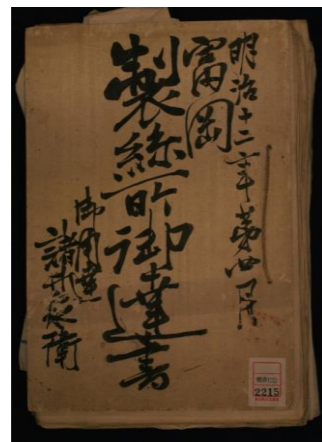 明治十二年第四月
富岡
製絲所御達書
御用達
諸井泉衛
2215